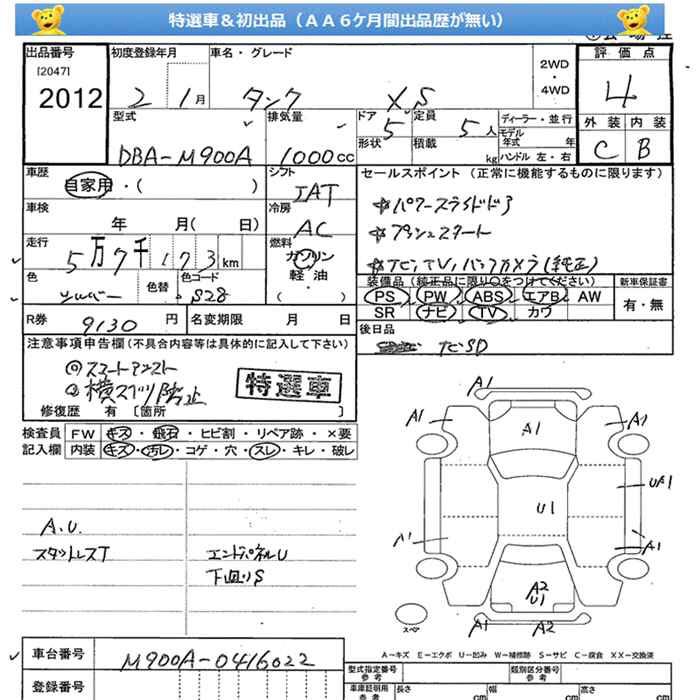 特選車＆初出品（ＡＡ６ケ月間出品歴が無い）
出品番号 初度登録年月 車名・グレード 評価点
[2047]
2012 2 1月 タンク XS 2WD・4WD 4
型式 排気量 ドア 定員 ディーラー・並行 外装 内装
DBA-M900A 1000cc 5 5人 モデル年式 年 C B
形状 積載 kg ハンドル 左・右
車歴 シフト セールスポイント（正常に機能するものに限ります）
自家用・（ ） IAT ☆パワースライドドア
車検 冷房 ☆プッシュスタート
年 月（ 日） AC ☆ナビ,TV,バックカメラ(純正)
走行 燃料
5万7千173km ガソリン
色 色替 色コード 軽油・
シルバー S28 （ ）
装備品（純正品に限り○をつけてください） 新車保証書
PS PW ABS エアB AW 有・無
SR ナビ TV カワ
R券 9130円 名変期限 月 日 後日品
ナビSD
注意事項申告欄（不具合内容等は具体的に記入して下さい）
◎スマートアシスト
◎横スベリ防止
特選車
修復歴 有 〔箇所 〕
検査員 FW キズ・飛石・ヒビ割・リペア跡・×要
記入欄 内装 キズ・汚レ・コゲ・穴・スレ・キレ・破レ
A.U.
スタットレスT エンドパネルU
下回りS
A1
A1 A1 A1
U1 UA1
A1 A1
A2
U1
スペア A1 A2
A－キズ E－エクボ U－凹み W－補修跡 S－サビ C－腐食 XX－交換済
車台番号 M900A-0416022
型式指定番号 参考 類別区分番号 参考
登録番号 車庫証明用参考 長さ cm 幅 cm 高さ cm